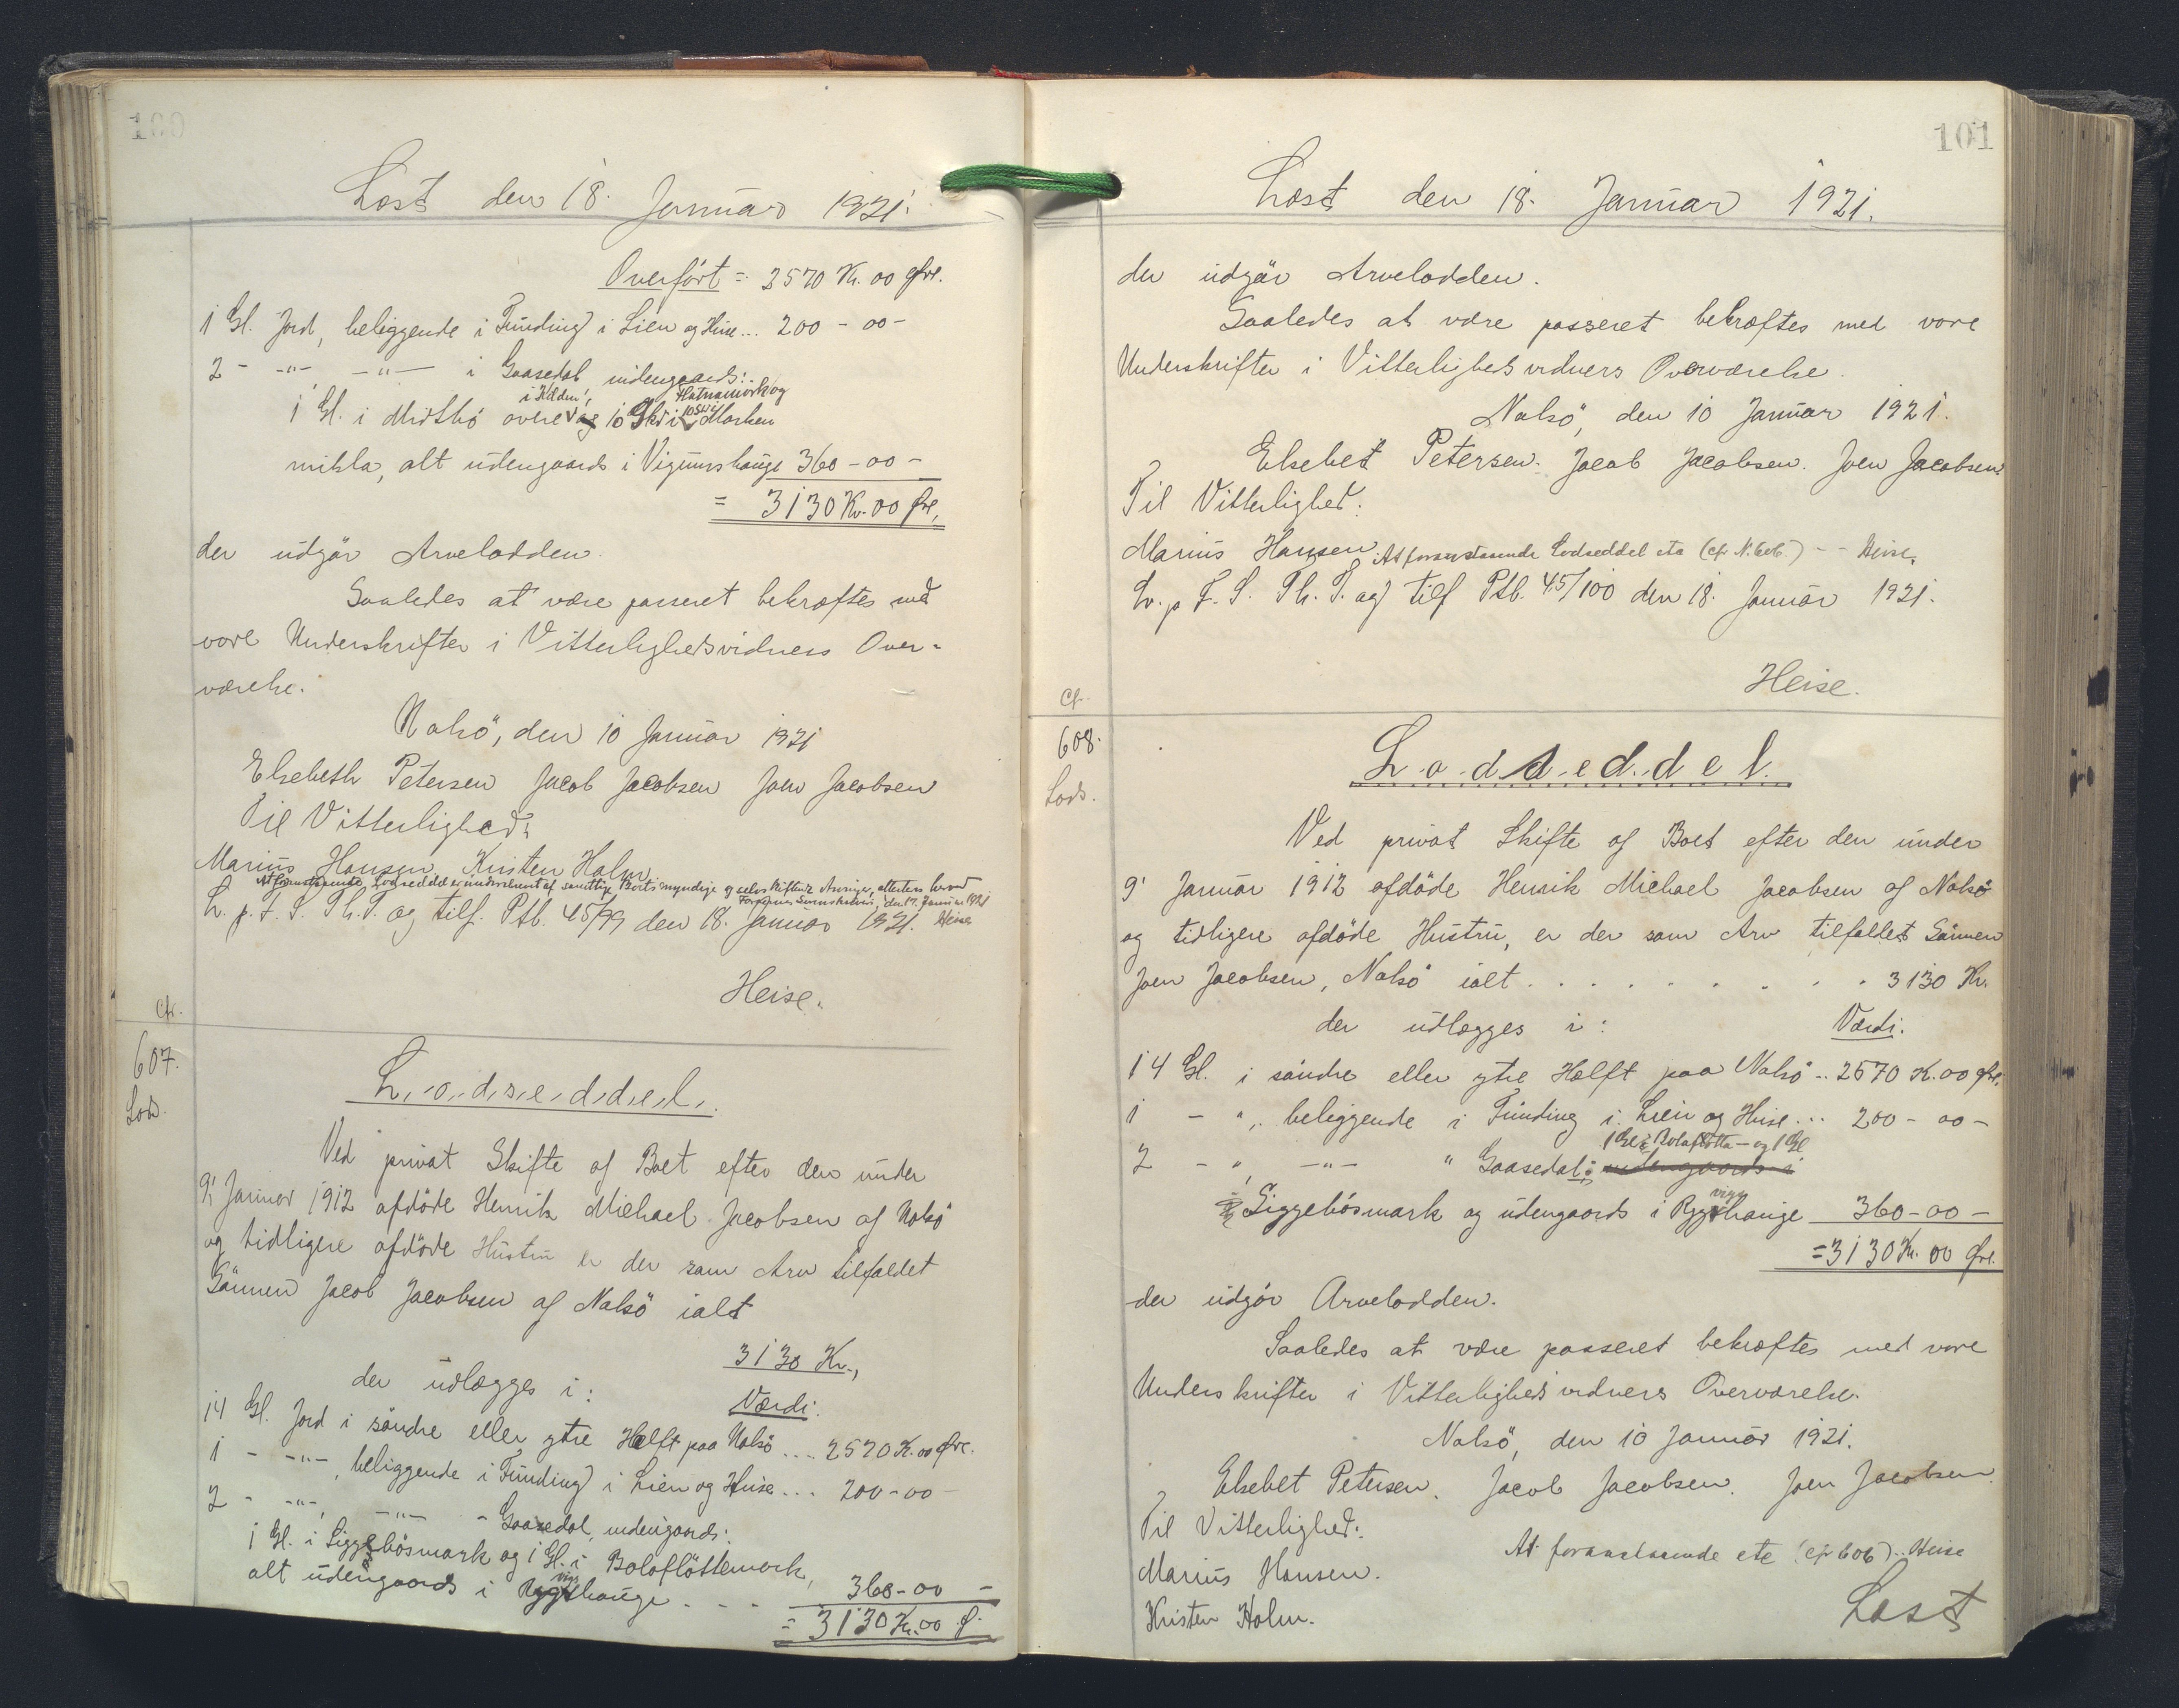 100
Læst den 18. Januar 1921.
Overfört = 2570 Kr. 00 Øre.
1 Gl. Jord, beliggende i Funding i Lien og Huse... 200 - 00 -
2 - -"-, -"- i Gaasedal, udengaards:
i Kálden, Hatnamörk og
1 Gl. i Midthö overe og 10 Skr i Marken
mikla, alt udengaards i Vigumshauge 360 - 00 -
= 3130 Kr. 00 Øre,
der udgör Arvelodden.
Saaledes at være passeret bekræftes med
vore Underskrifter i Vitterlighedsvidners Over-
værelse.
Nolsö, den 10 Januar 1921
Elsebeth Petersen Jacob Jacobsen Joen Jacobsen
Til Vitterlighed:
Marius Hansen Kristen Holm
At foranstaaende Lodseddel er underskrevet af samtlige Boets myndige og selvskiftende Arvinger, attesteres herved
Færøernes Sorenskriveri, den 17. Januar 1921
L. p. F. S. Th. T. og tilf. Ptb. 45/99 den 18. Januar 1921. Heise
Heise.
Cfr.
607.
Lods.
Lodseddel.
Ved privat Skifte af Boet efter den under
9' Januar 1912 afdöde Henrik Michael Jacobsen af Nolsö
og tidligere afdöde Hustru er der som Arv tilfaldet
Sönnen Jacob Jacobsen af Nolsö ialt
3130 Kr.,
der udlægges i:
Værdi.
14 Gl. Jord i söndre eller ytre Helft paa Nolsö .... 2570 K. 00 Øre.
1 - -"-, beliggende i Funding i Lien og Huse... 200 - 00 -
2 - -"-, -"- - Gaasedal, udengaards:
1 Gl. i Siggebösmark og 1 Gl. i Boloflöttemark,
alt udengaards i Ryggshauge - - - 360 - 00 -
= 3130 Kr. 00 Ø.
101
Læst den 18. Januar 1921.
der udgör Arvelodden.
Saaledes at være passeret bekræftes med vore
Underskrifter i Vitterlighedsvidners Overværelse.
Nolsö, den 10 Januar 1921.
Elsebet Petersen. Jacob Jacobsen. Joen Jacobsen.
Til Vitterlighed:
Marius Hansen. At foranstaaende Lodseddel etc (cfr N. 606.) - - Heise.
Lv. p F. S. Th. T. og tilf Ptb. 45/100 den 18. Januar 1921.
Heise.
Cf.
608.
Lods.
Lodseddel.
Ved privat Skifte af Boet efter den under
9' Januar 1912 afdöde Henrik Michael Jacobsen af Nolsö
og tidligere afdöde Hustru, er der som Arv tilfaldet Sönnen
Joen Jacobsen, Nolsö ialt . . . . . . . . . 3130 Kr.
der udlægges i: Værdi.
14 Gl. i söndre eller ytre Hælft paa Nolsö .. 2570 K. 00 Øre.
1 - ". beliggende i Funding i Lien og Huse... 200 - 00 -
1 Gl i Bolaflötta - og 1 Gl
2 - ", -"- " Gaasedal: udengaards i
i Siggebösmark og udengaards i Ryggshauge 360 - 00 -
= 3130 Kr. 00 Øre.
der udgör Arvelodden.
Saaledes at være passeret bekræftes med vore
Underskrifter i Vitterlighedsvidners Overværelse.
Nolsö, den 10 Januar 1921.
Elsebet Petersen. Jacob Jacobsen. Joen Jacobsen.
Til Vitterlighed:
At foranstaaende etc (cfr 606) .. Heise
Marius Hansen.
Kristen Holm.
Læst